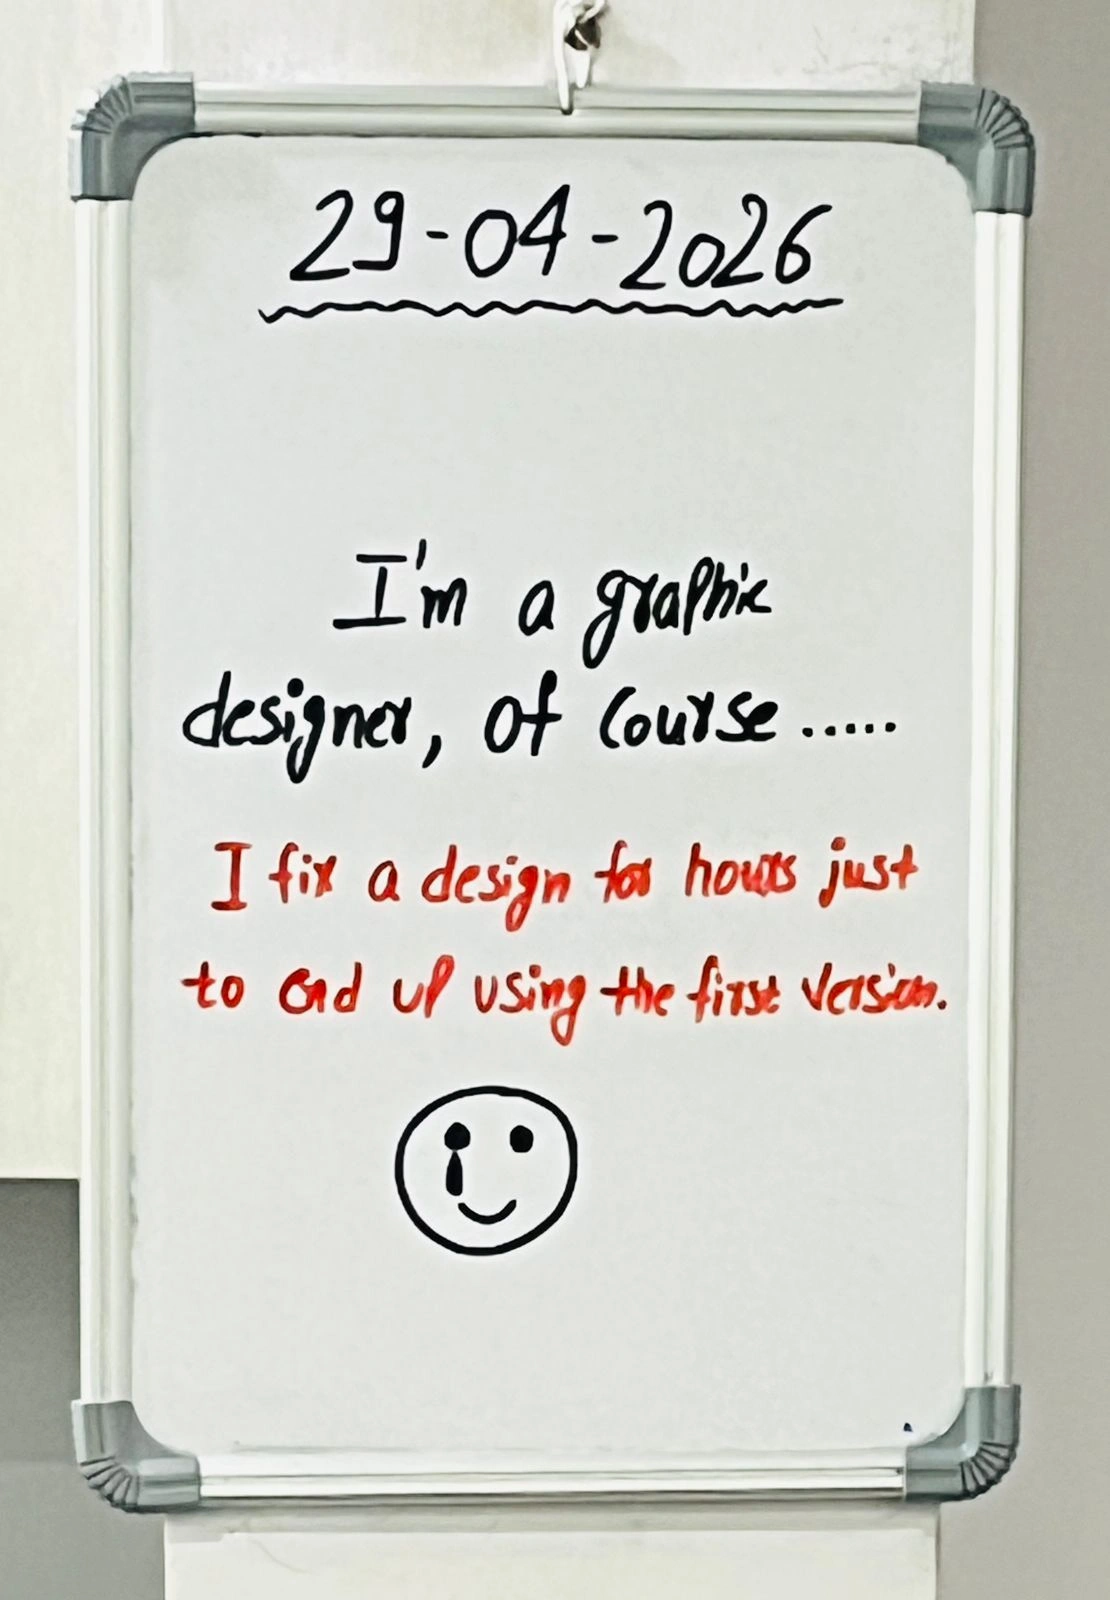 29-04-2026
I'm a graphic
designer, of course.....
I fix a design for hours just
to end up using the first version.